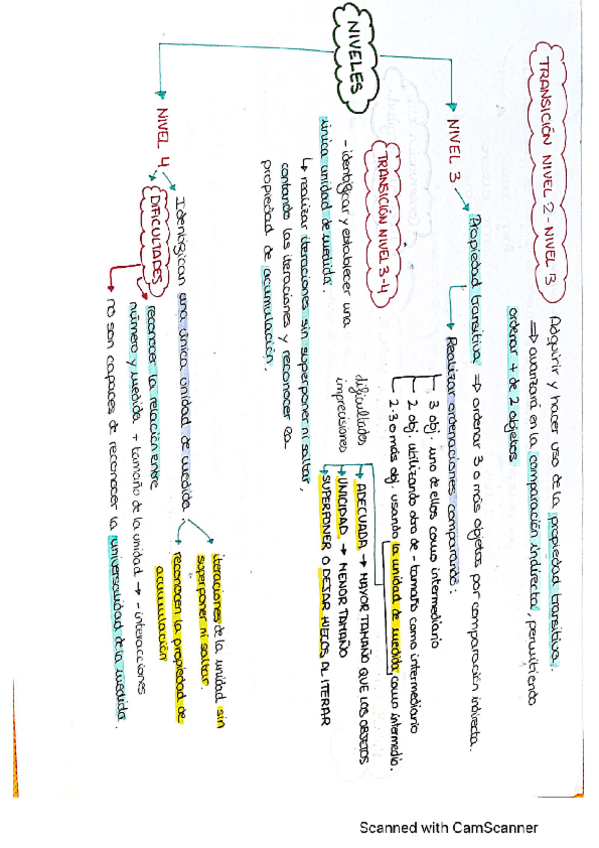 TRANSICIÓN NIVEL 2 - NIVEL 3
Adquirir y hacer uso de la propiedad transitiva.
⇒ avanzará en la comparación indirecta, permitiendo
ordenar + de 2 objetos
NIVELES
NIVEL 3
Propiedad transitiva ⇒ ordenar 3 o más objetos por comparación indirecta.
Realizar ordenaciones comparando:
3 obj. uno de ellos como intermediario
2 obj. utilizando otro de - tamaño como intermediario
2-3 o más obj. usando la unidad de medida como intermedia.
TRANSICIÓN NIVEL 3-4
- identificar y establecer una
única unidad de medida.
↳ realizar iteraciones sin superponer ni saltar,
contando las iteraciones y reconocer la
propiedad de acumulación.
dificultades
imprecisiones
ADECUADA → MAYOR TAMAÑO QUE LOS OBJETOS
UNICIDAD → MENOR TAMAÑO
SUPERPONER O DEJAR HUECOS AL ITERAR
NIVEL 4
Identifican una única unidad de medida.
iteraciones de la unidad sin
superponer ni saltar.
reconocen la propiedad de
acumulación
DIFICULTADES
reconocer la relación entre
número y medida + tamaño de la unidad → - interacciones
no son capaces de reconocer la universalidad de la medida.
Scanned with CamScanner